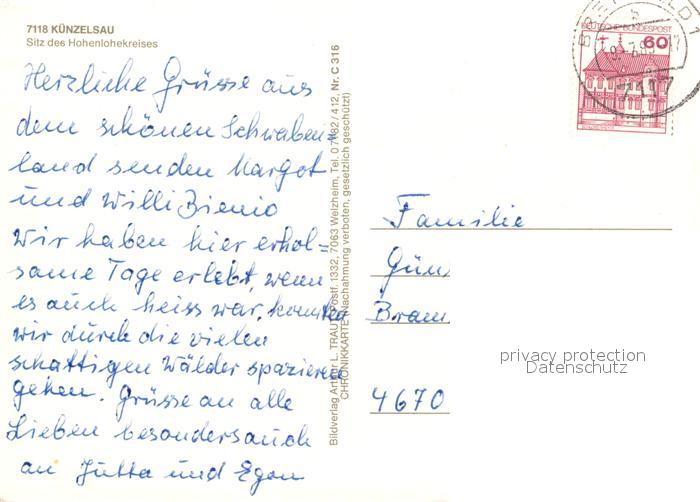 7118 KÜNZELSAU
Sitz des Hohenlohekreises
Herzliche Grüsse aus
dem schönen Schwaben=
land senden Margot
und Willi Bienio
Wir haben hier erhol=
same Tage erlebt, wenn
es auch heiss war, konnten
wir durch die vielen
schattigen Wälder spazieren
gehen. Grüsse an alle
Lieben besonders auch
an Jutta und Egon
Bildverlag Arthur L. TRAUT, Postf. 1332, 7063 Welzheim, Tel. 07182/412, Nr. C 316
CHRONIKKARTE (Nachahmung verboten, gesetzlich geschützt)
DEUTSCHE BUNDESPOST
60
7117
Familie
Gün
Bram
4670
privacy protection
Datenschutz